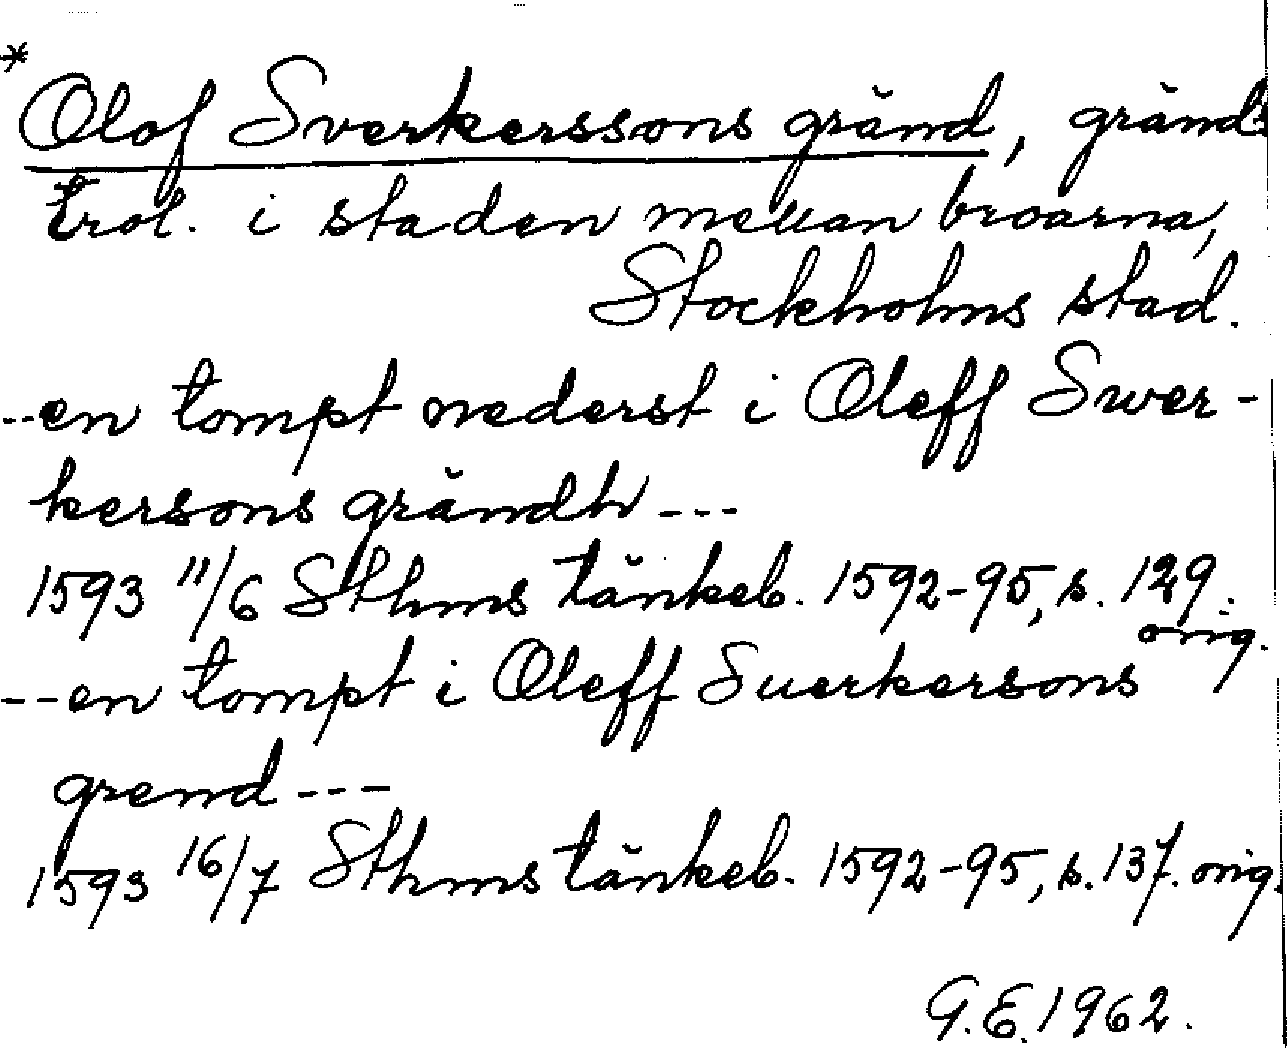 *
Olof Sverkerssons gränd, gränd
trol. i staden mellan broarna,
Stockholms stad.
--en tompt nederst i Oleff Swer-
kersons grändh ---
1593 11/6 Sthms tänkeb. 1592-95, s. 129.
orig.
---en tompt i Oleff Suerkersons
grend ---
1593 16/7 Sthms tänkeb. 1592-95, s. 137. orig.
G.E. 1962.